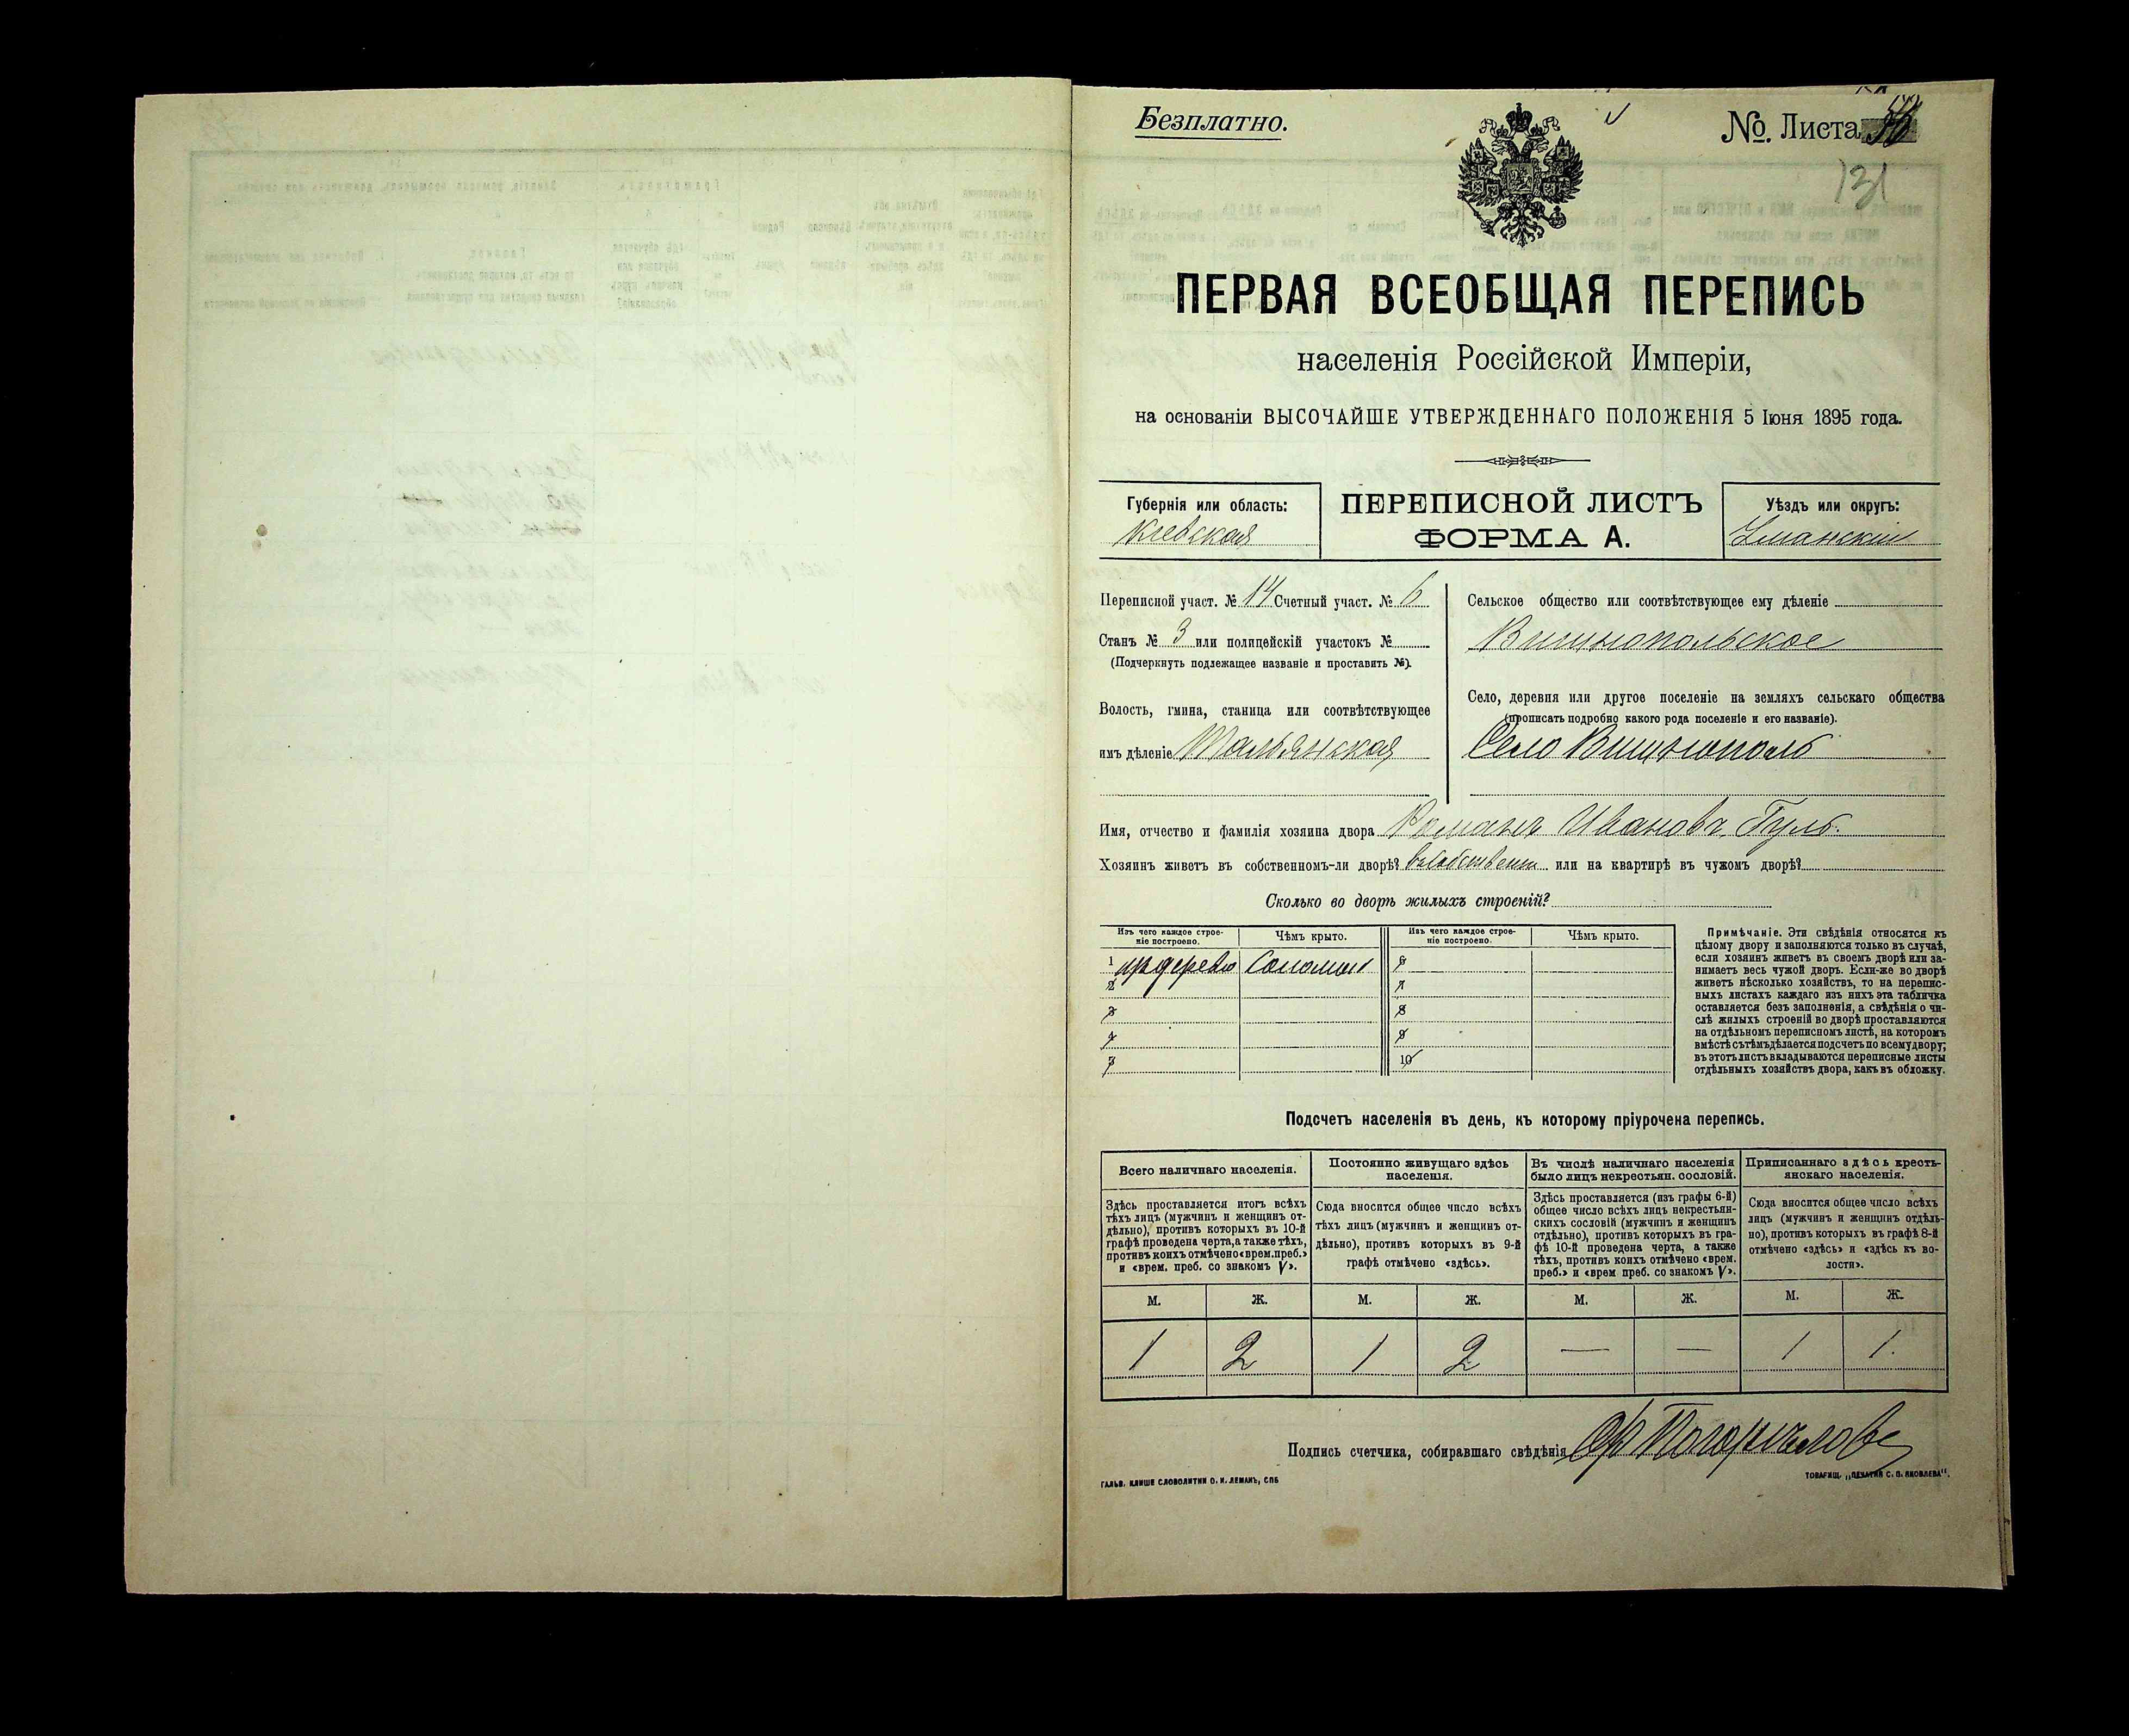 Безплатно.
№. Листа
131
ПЕРВАЯ ВСЕОБЩАЯ ПЕРЕПИСЬ
населенія Россійской Имперіи,
на основаніи ВЫСОЧАЙШЕ УТВЕРЖДЕННАГО ПОЛОЖЕНІЯ 5 Іюня 1895 года.
Губернія или область:
Кіевская
ПЕРЕПИСНОЙ ЛИСТЪ
ФОРМА А.
Уѣздъ или округъ:
Уманскій
Переписной участ. № 14 Счетный участ. № 6
Станъ № 3 или полицейскій участокъ №
(Подчеркнуть подлежащее названіе и проставить №).
Волость, гмина, станица или соотвѣтствующее
имъ дѣленіе Тальянская
Сельское общество или соотвѣтствующее ему дѣленіе
Вишнопольское
Село, деревня или другое поселеніе на земляхъ сельскаго общества
(прописать подробно какого рода поселеніе и его названіе).
Село Вишнополь
Имя, отчество и фамилія хозяина двора Романъ Ивановъ Гуль.
Хозяинъ живетъ въ собственномъ-ли дворѣ? въ собственн или на квартирѣ въ чужомъ дворѣ?
Сколько во дворѣ жилыхъ строеній?
Изъ чего каждое строе-
ніе построено.
Чѣмъ крыто.
Изъ чего каждое строе-
ніе построено.
Чѣмъ крыто.
1 изъ дерева Соломы 6
2 7
3 8
4 9
5 10
Примѣчаніе. Эти свѣдѣнія относятся къ
цѣлому двору и заполняются только въ случаѣ,
если хозяинъ живетъ въ своемъ дворѣ или за-
нимаетъ весь чужой дворъ. Если-же во дворѣ
живетъ нѣсколько хозяйствъ, то на перепис-
ныхъ листахъ каждаго изъ нихъ эта табличка
оставляется безъ заполненія, а свѣдѣнія о чи-
слѣ жилыхъ строеній во дворѣ проставляются
на отдѣльномъ переписномъ листѣ, на которомъ
вмѣстѣ съ тѣмъ дѣлается подсчетъ по всему двору;
въ этотъ листъ вкладываются переписные листы
отдѣльныхъ хозяйствъ двора, какъ въ обложку.
Подсчетъ населенія въ день, къ которому пріурочена перепись.
Всего наличнаго населенія.
Здѣсь проставляется итогъ всѣхъ
тѣхъ лицъ (мужчинъ и женщинъ от-
дѣльно), противъ которыхъ въ 10-й
графѣ проведена черта, а также тѣхъ,
противъ коихъ отмѣчено «врем. преб.»
и «врем. преб. со знакомъ V».
Постоянно живущаго здѣсь
населенія.
Сюда вносится общее число всѣхъ
тѣхъ лицъ (мужчинъ и женщинъ от-
дѣльно), противъ которыхъ въ 9-й
графѣ отмѣчено «здѣсь».
Въ числѣ наличнаго населенія
было лицъ некрестьян. сословій.
Здѣсь проставляется (изъ графы 6-й)
общее число всѣхъ лицъ некрестьян-
скихъ сословій (мужчинъ и женщинъ
отдѣльно), противъ которыхъ въ гра-
фѣ 10-й проведена черта, а также
тѣхъ, противъ коихъ отмѣчено «врем.
преб.» и «врем преб. со знакомъ V».
Приписаннаго здѣсь кресть-
янскаго населенія.
Сюда вносится общее число всѣхъ
лицъ (мужчинъ и женщинъ отдѣль-
но), противъ которыхъ въ графѣ 8-й
отмѣчено «здѣсь» и «здѣсь къ во-
лости».
М. Ж. М. Ж. М. Ж. М. Ж.
1 2 1 2 — — 1 1.
Подпись счетчика, собиравшаго свѣдѣнія
ГАЛЬВ. КЛИШЕ СЛОВОЛИТНИ О. И. ЛЕМАНЪ, СПБ
ТОВАРИЩ. „ПЕЧАТНЯ С. П. ЯКОВЛЕВА“.